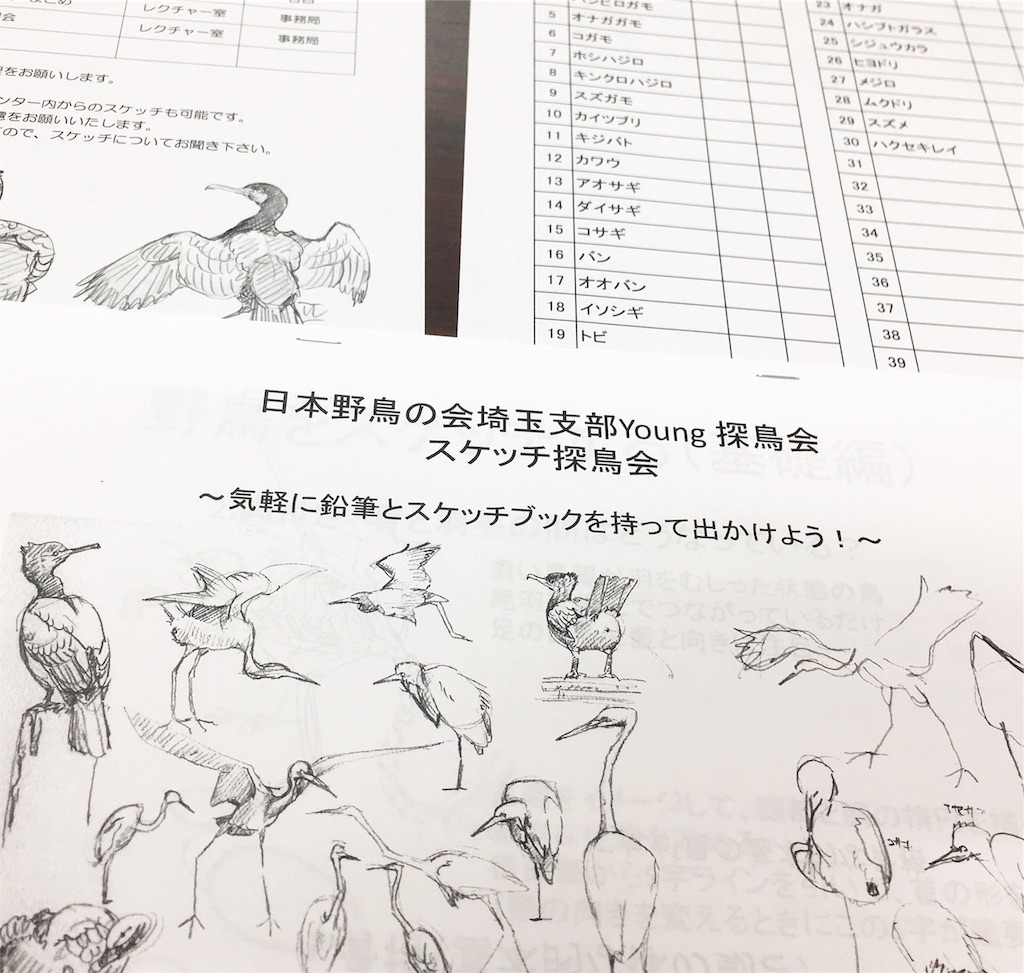 レクチャー室 事務局
レクチャー室 事務局
をお願いします。
ンター内からのスケッチも可能です。
をお願いいたします。
ので、スケッチについてお聞き下さい。
5 オナガガモ
6 コガモ
7 ホシハジロ
8 キンクロハジロ
9 スズガモ
10 カイツブリ
11 キジバト
12 カワウ
13 アオサギ
14 ダイサギ
15 コサギ
16 バン
17 オオバン
18 イソシギ
19 トビ
23 オナガ
24 ハシブトガラス
25 シジュウカラ
26 ヒヨドリ
27 メジロ
28 ムクドリ
29 スズメ
30 ハクセキレイ
31
32
33
34
35
36
37
38
39
日本野鳥の会埼玉支部Young 探鳥会
スケッチ探鳥会
～気軽に鉛筆とスケッチブックを持って出かけよう！～